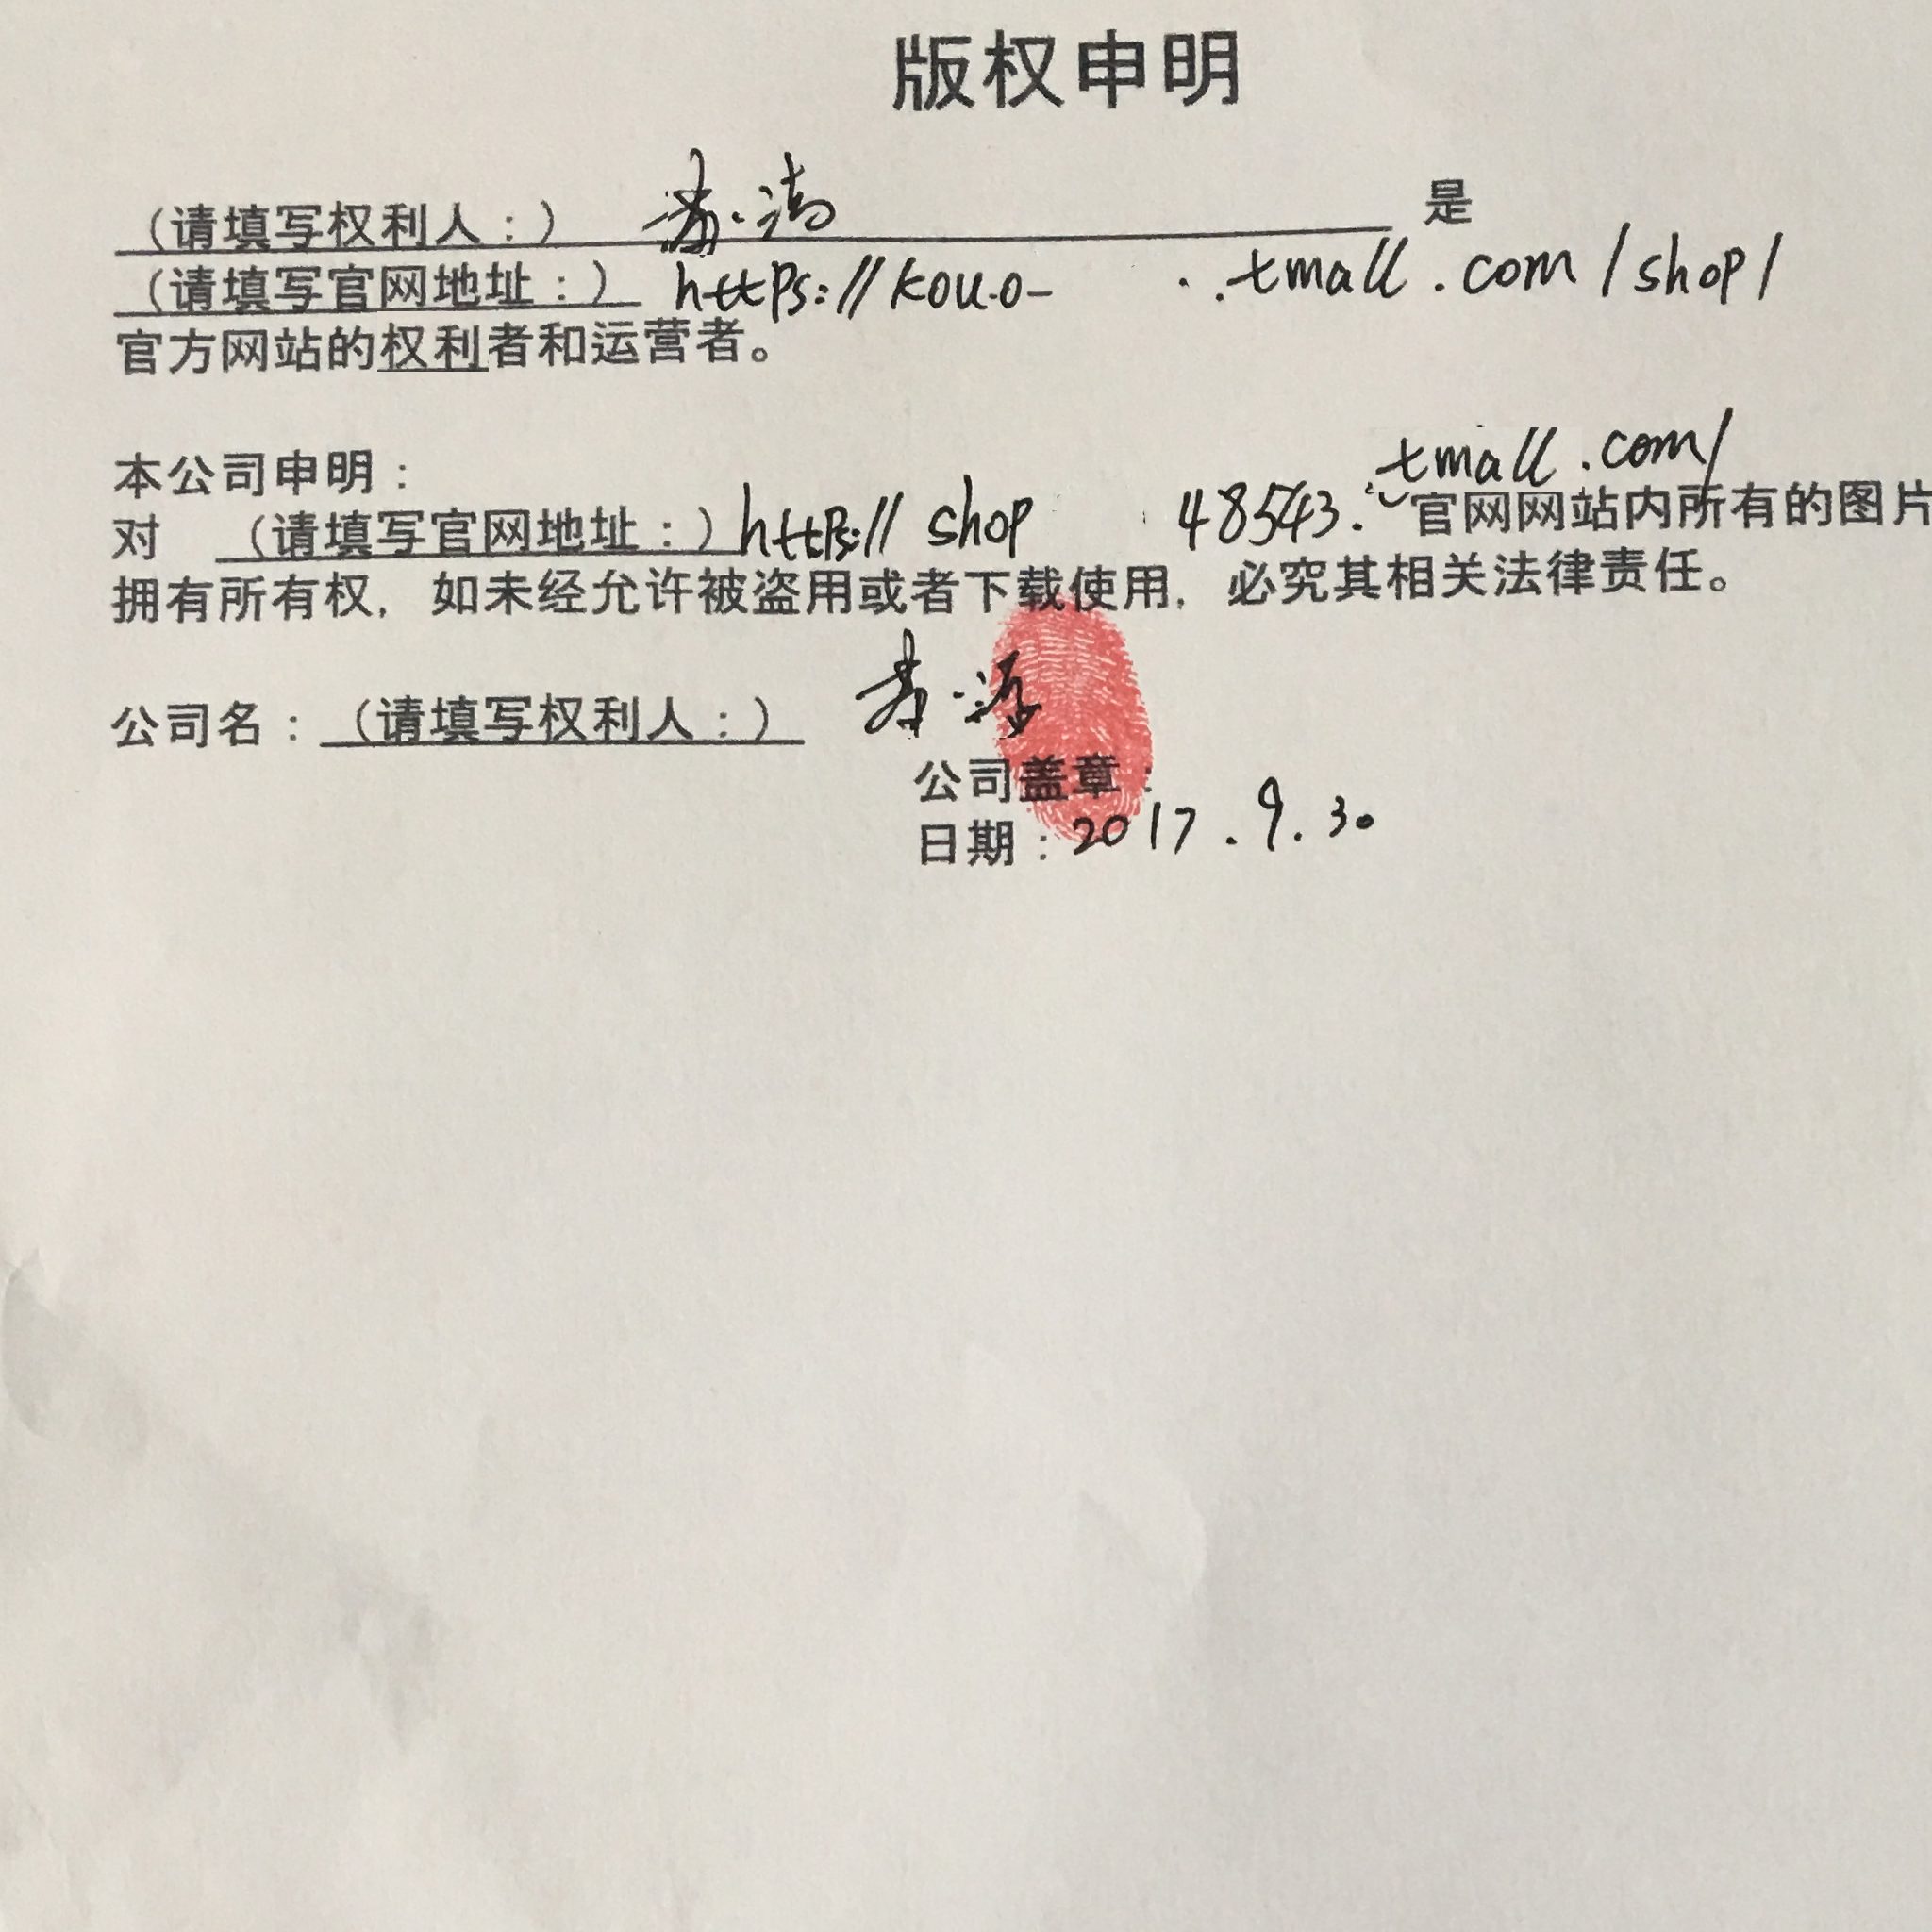 版权申明
（请填写权利人：） 是
（请填写官网地址：） https://kou.o- ..tmall.com/shop/
官方网站的权利者和运营者。
本公司申明：
tmall.com/
对 （请填写官网地址：）https:// shop 48543. 官网网站内所有的图片
拥有所有权，如未经允许被盗用或者下载使用，必究其相关法律责任。
公司名：（请填写权利人：）
公司盖章：
日期：2017.9.30